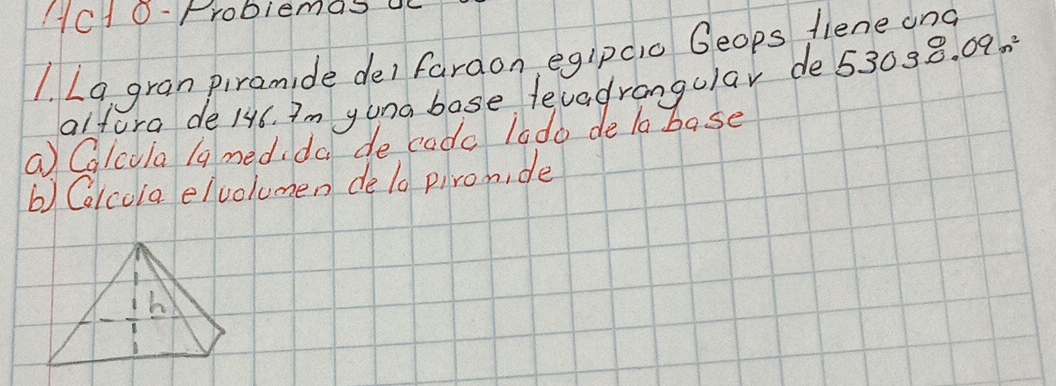 Act 8 - Problemas de
1. La gran piramide del faraon egipcio Geops tiene una
altura de 146.7m y una base tevadrangular de 53038.09m²
a) Calcula la medida de cada lado de la base
b) Calcula el volumen de la piramide
h